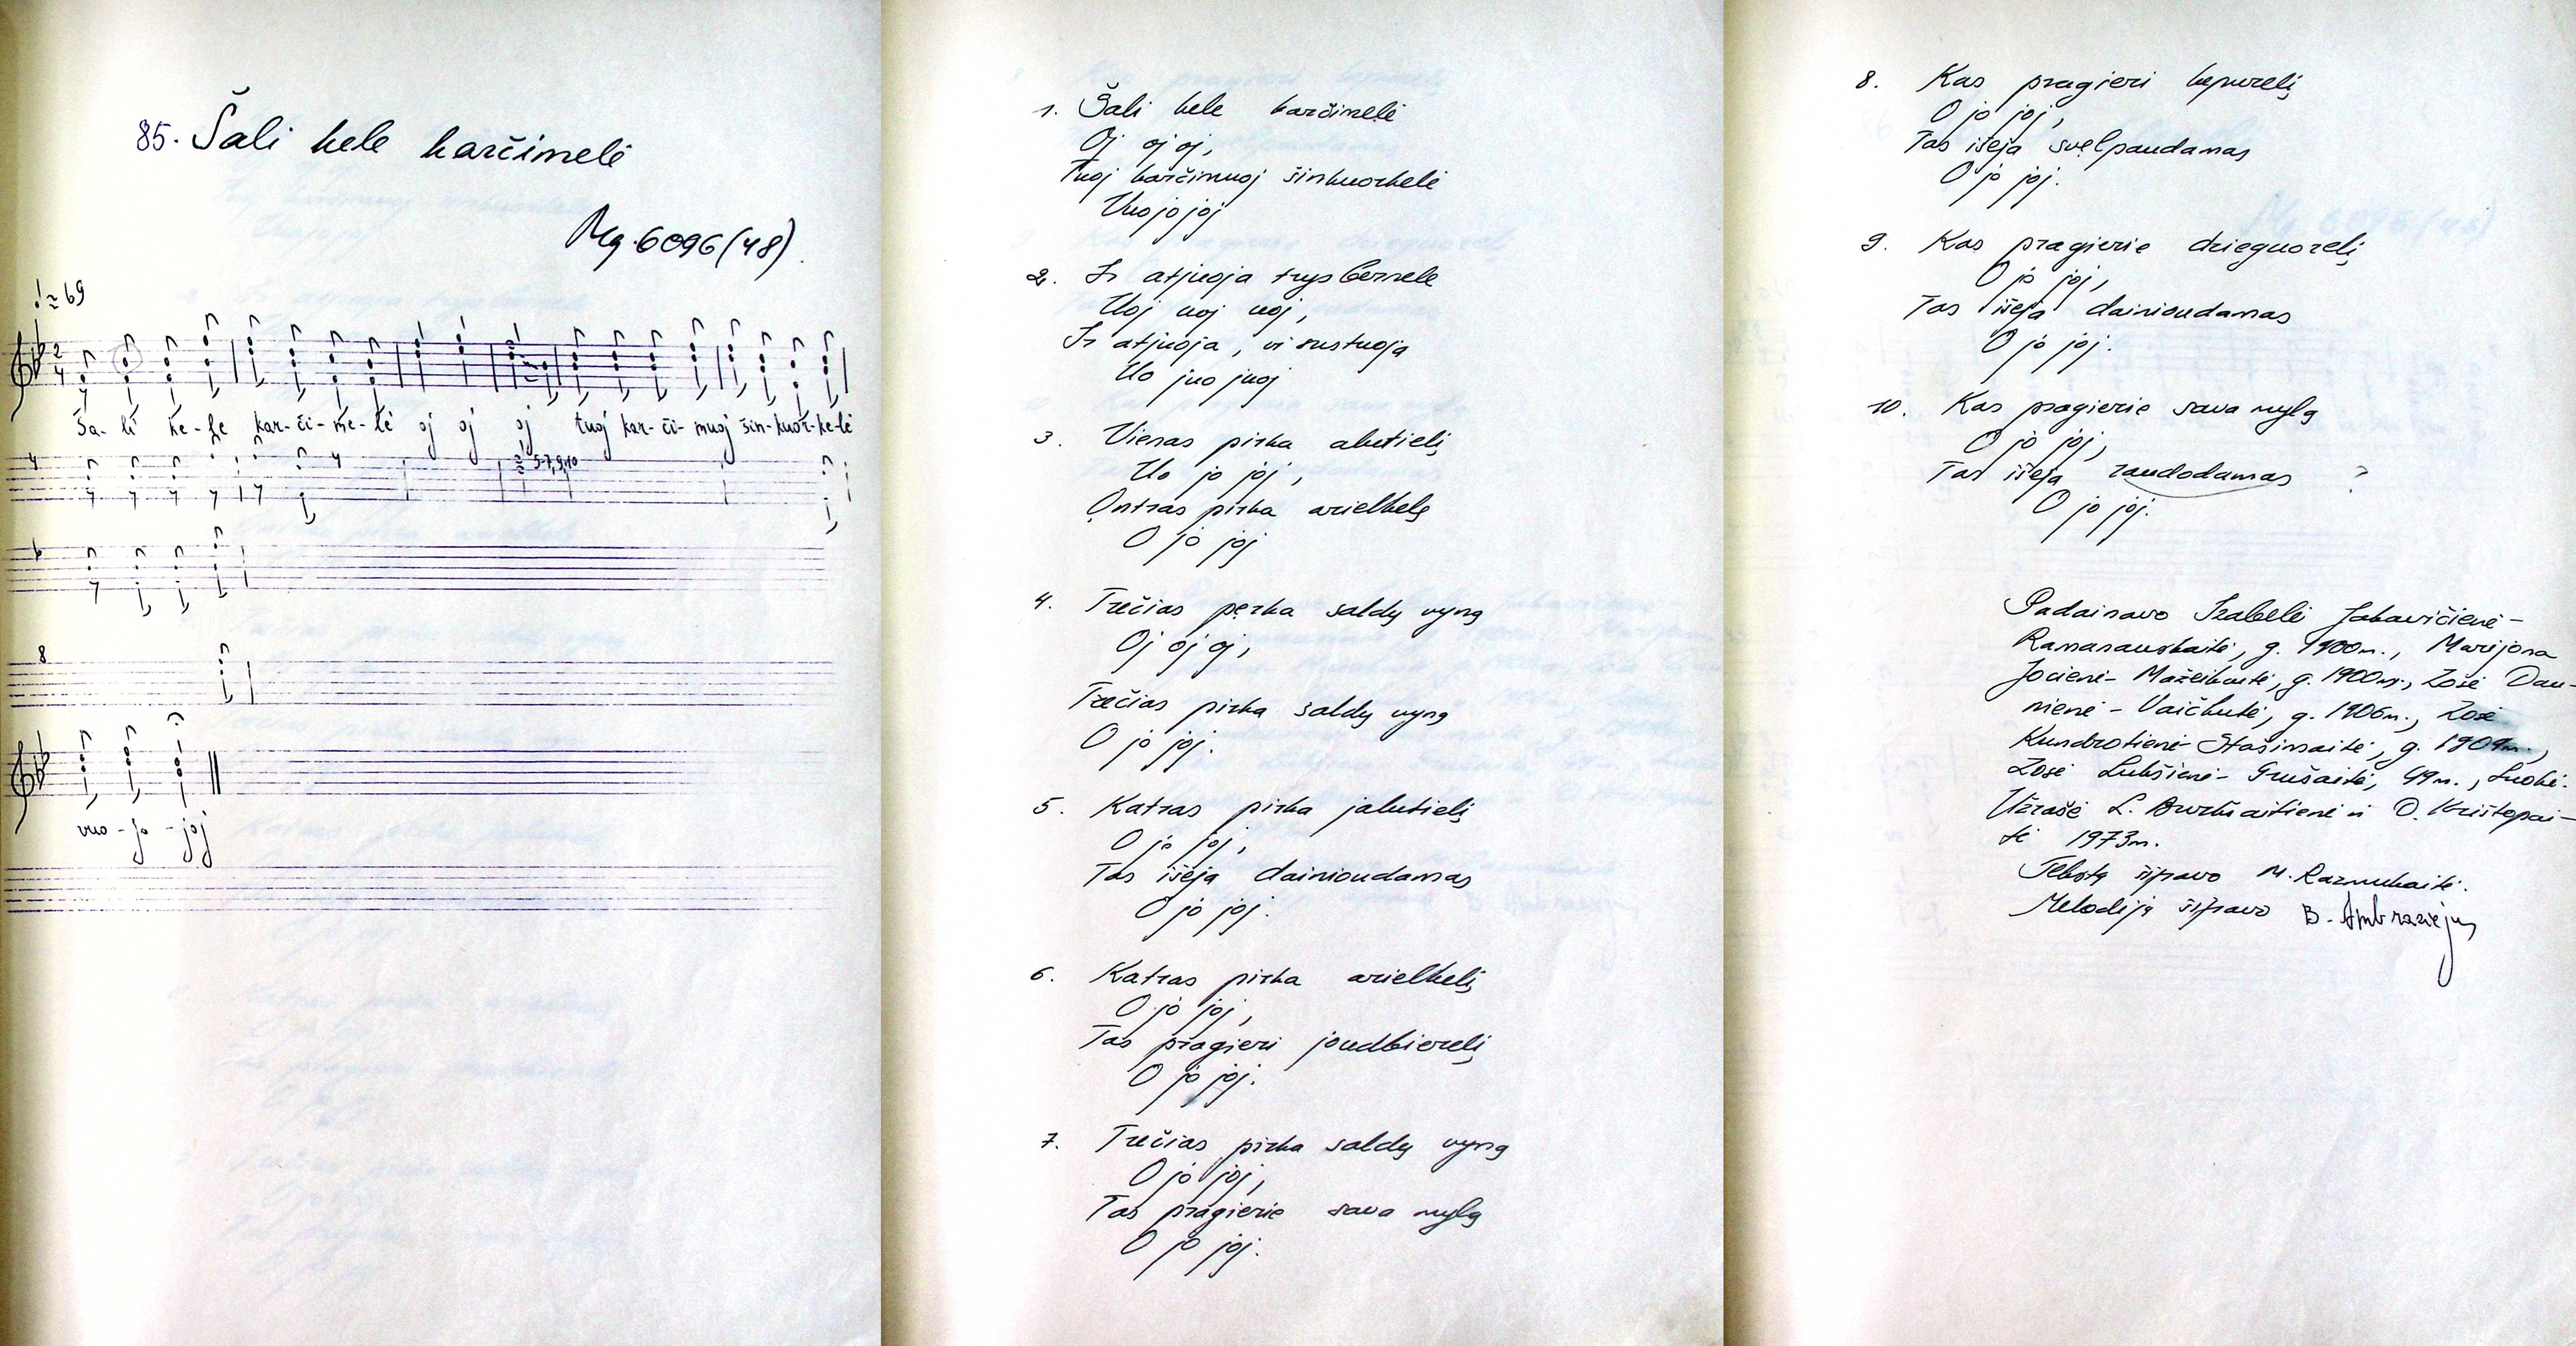 85. Šali kele karčimelė
Mg. 6096 (48).
≈ 69
2
4
Ša- li ke- le kar- či- me- lė oj oj oj tuoj kar- či- muoj šin- kuor- ke- lė
4
2 5-7, 9, 10
8
vuo - jo - joj
1. Šali kele karčimelė
Oj oj oj,
Tuoj karčimuoj šinkuorkelė
Vuojojoj
2. Ir atjuoja trys bernele
Uoj uoj uoj,
Ir atjuoja, vi sustuoja
Uo juo juoj
3. Vienas pirka alutielį
Uo jo joj,
Ontras pirka arielkelę
O jo joj
4. Trečias perka saldų vyną
Oj oj oj,
Trečias pirka saldų vyną
O jo joj.
5. Katras pirka jalutielį
O jo joj,
Tas išėja dainioudamas
O jo joj.
6. Katras pirka arielkelį
O jo joj,
Tas pragieri joudbierelį
O jo joj.
7. Trečias pirka saldų vyną
O jo joj,
Tas pragierie sava mylą
O jo joj.
8. Kas pragieri kepurelį
O jo joj,
Tas išėja švelpaudamas
O jo joj.
9. Kas pragierie dzieguorelį
O jo joj,
Tas išėja dainioudamas
O jo joj.
10. Kas pragierie sava mylą
O jo joj,
Tas išėja raudodamas ?
O jo joj.
Padainavo Izabelė Jakavičienė-
Ramanauskaitė, g. 1900m., Marijona
Jocienė- Mažeikaitė, g. 1900m., Zosė Dau-
nienė - Vaičkutė, g. 1906m., Zosė
Kundrotienė- Stašinsaitė, g. 1909m.,
Zosė Lukšienė- Grušaitė, 49m., Luokė.
Užrašė L. Burkšaitienė ir D. Krištopai-
tė 1973m.
Tekstą šifravo M. Razmukaitė.
Melodiją šifravo B. Ambraziejus